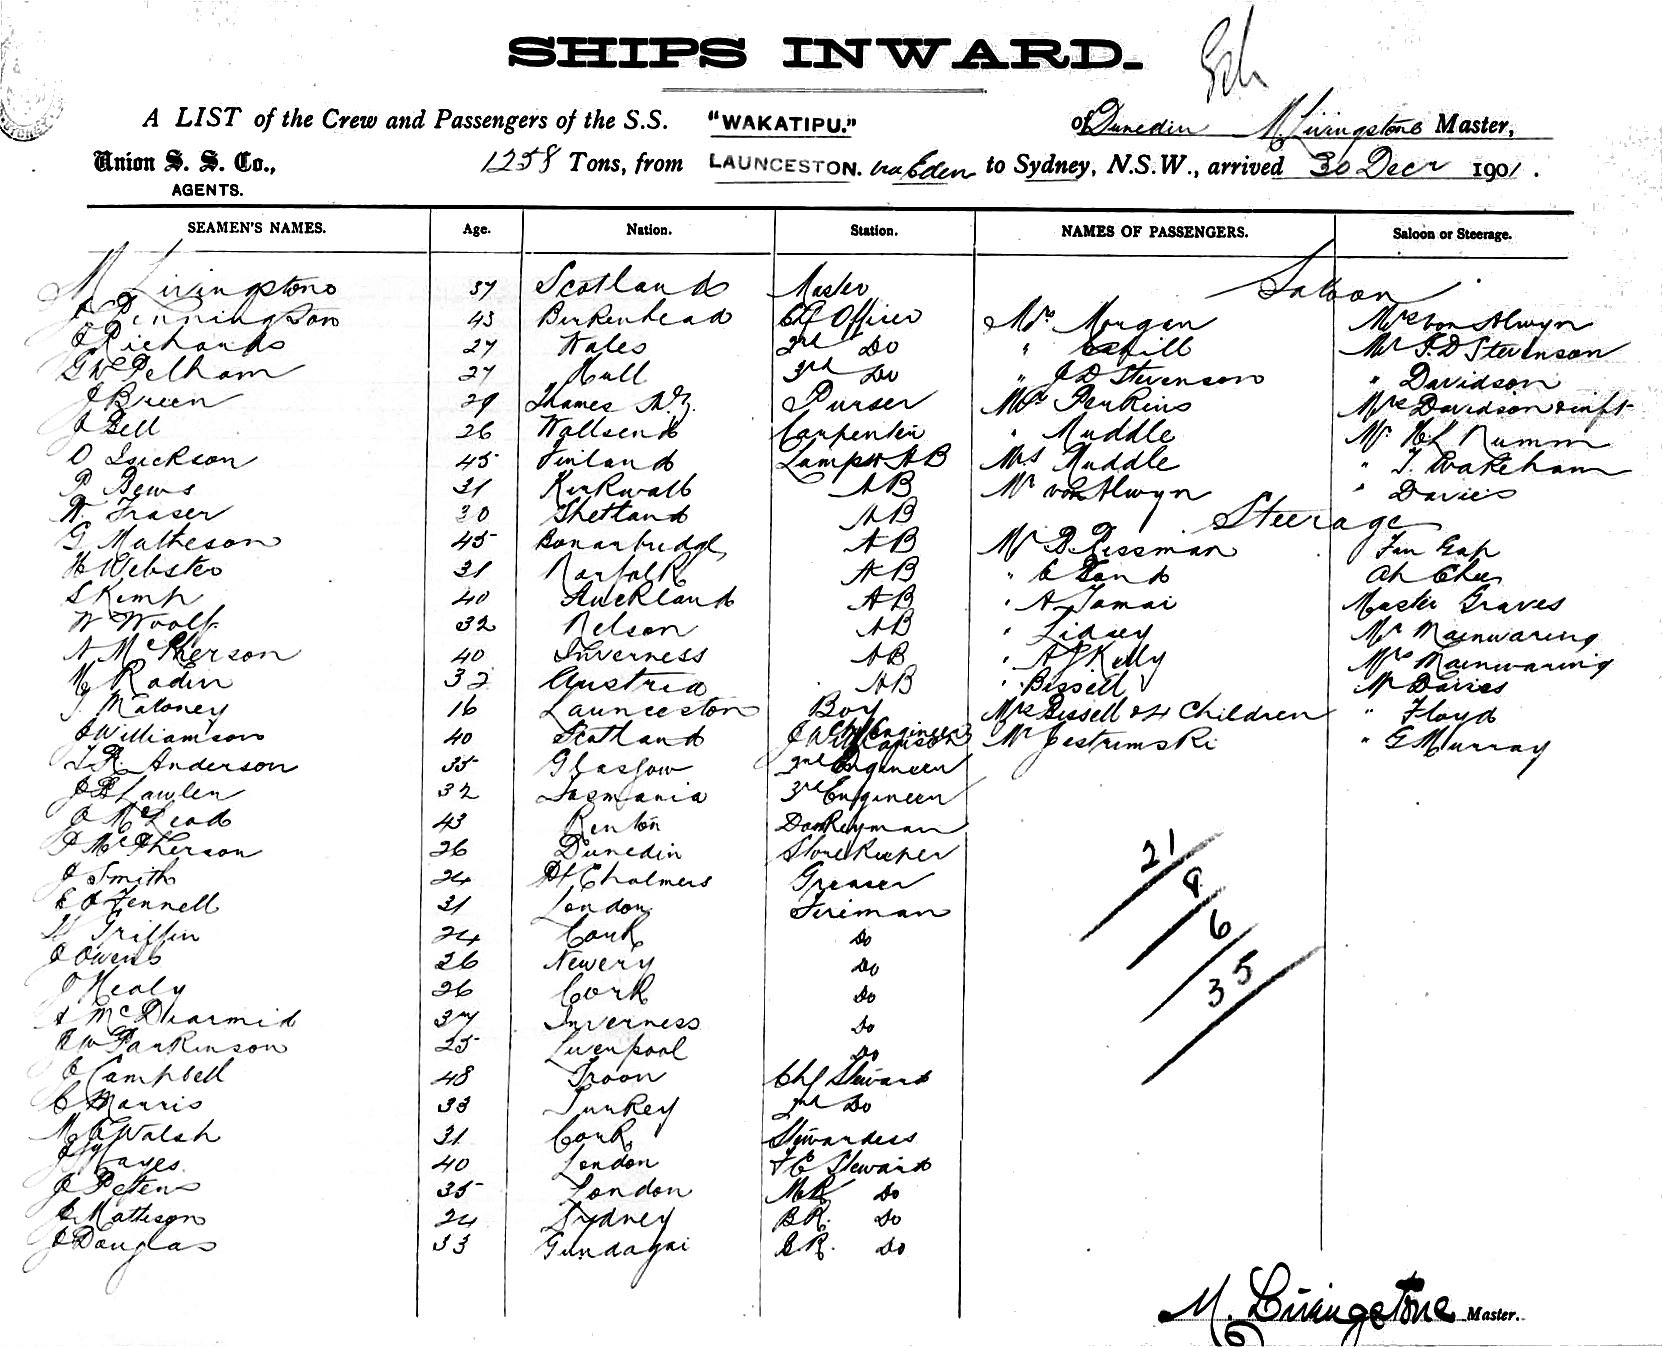 SHIPS INWARD.
A LIST of the Crew and Passengers of the S.S. "WAKATIPU." of Dunedin M Livingstone Master,
Union S. S. Co., 1258 Tons, from LAUNCESTON. via Eden to Sydney, N.S.W., arrived 30 Decr 1901.
AGENTS.
SEAMEN'S NAMES. Age. Nation. Station. NAMES OF PASSENGERS. Saloon or Steerage.
M Livingstone 57 Scotland Master Saloon
J Pennington 43 Birkenhead Ch Officer Mrs Morgan Mrs von Alwyn
J Richards 27 Wales 2nd Do " Cahill Mr F. D Stevenson
G W Pelham 27 Hull 3rd Do " J D Stevenson " Davidson
J Breen 29 Thames N.Z. Purser Mrs Perkins Mrs Davidson & inft
J Bell 26 Wallsend Carpenter " Muddle Mr H L Numm
O Isickson 45 Finland Lamps & AB Mrs Muddle " T. Wakeham
P Bews 31 Kirkwall AB Mr von Alwyn " Davies
W. Fraser 30 Shetland AB Steerage
G Matheson 45 Bonarbridge AB Mr D. Pessman Fan Gap
H Webster 31 Norfolk AB " C Dand Ah Chee
S Kemp 40 Auckland AB " A Tamai Master Graves
W Woolf 32 Nelson AB " Lidsey Mr Mainwaring
A McPherson 40 Inverness AB " A J Kelly Mrs Mainwaring
M Radin 32 Austria AB " Bissell Mr Davies
J Maloney 16 Launceston Boy Mrs Bissell & 4 Children " Floyd
J Williamson 40 Scotland Chf Engineer Mr Jestrimski " G Murray
T. R. Anderson 35 Glasgow 2nd Engineer
J B Lawler 32 Tasmania 3rd Engineer
J McLeod 43 Renton Donkeyman
J McPherson 26 Dunedin Storekeeper
J Smith 24 Pt Chalmers Greaser
C J Fennell 31 London Fireman
Griffin 24 Cork Do
J Owens 26 Newery Do
J Healy 26 Cork Do
A McDiarmid 37 Inverness Do
J W Parkinson 25 Liverpool Do
J Campbell 48 Troon Chf Steward
C Morris 33 Turkey 2nd Do
M A Walsh 31 Cork Stewardess
J Hayes 40 London F C Steward
J Peters 35 London M R Do
C Matteson 24 Sydney B.R. Do
J Douglas 33 Gundagai B.R. Do
21
8
6
35
M. Livingstone Master.